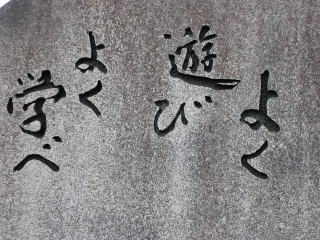 よく
遊び
よく
学べ